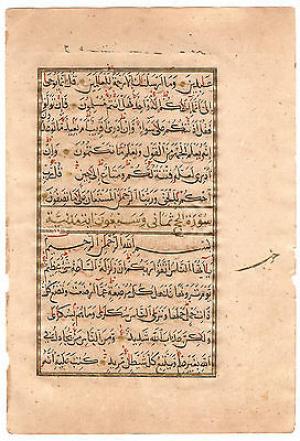 عابدين وما أرسلناك إلا رحمة للعالمين قل إنما يوحى
إلي أنما إلهكم إله واحد فهل أنتم مسلمون فإن تولوا
فقل آذنتكم على سواء وإن أدري أقريب أم بعيد ما توعدون
إنه يعلم الجهر من القول ويعلم ما تكتمون وإن
أدري لعله فتنة لكم ومتاع إلى حين قل رب
احكم بالحق وربنا الرحمن المستعان على ما تصفون
سورة الحج ثماني وسبعون آية مدنية
بسم الله الرحمن الرحيم
يا أيها الناس اتقوا ربكم إن زلزلة الساعة شيء عظيم
يوم ترونها تذهل كل مرضعة عما أرضعت وتضع كل
ذات حمل حملها وترى الناس سكارى وما هم بسكارى
ولكن عذاب الله شديد ومن الناس من يجادل في
الله بغير علم ويتبع كل شيطان مريد كتب عليه أنه
حزب